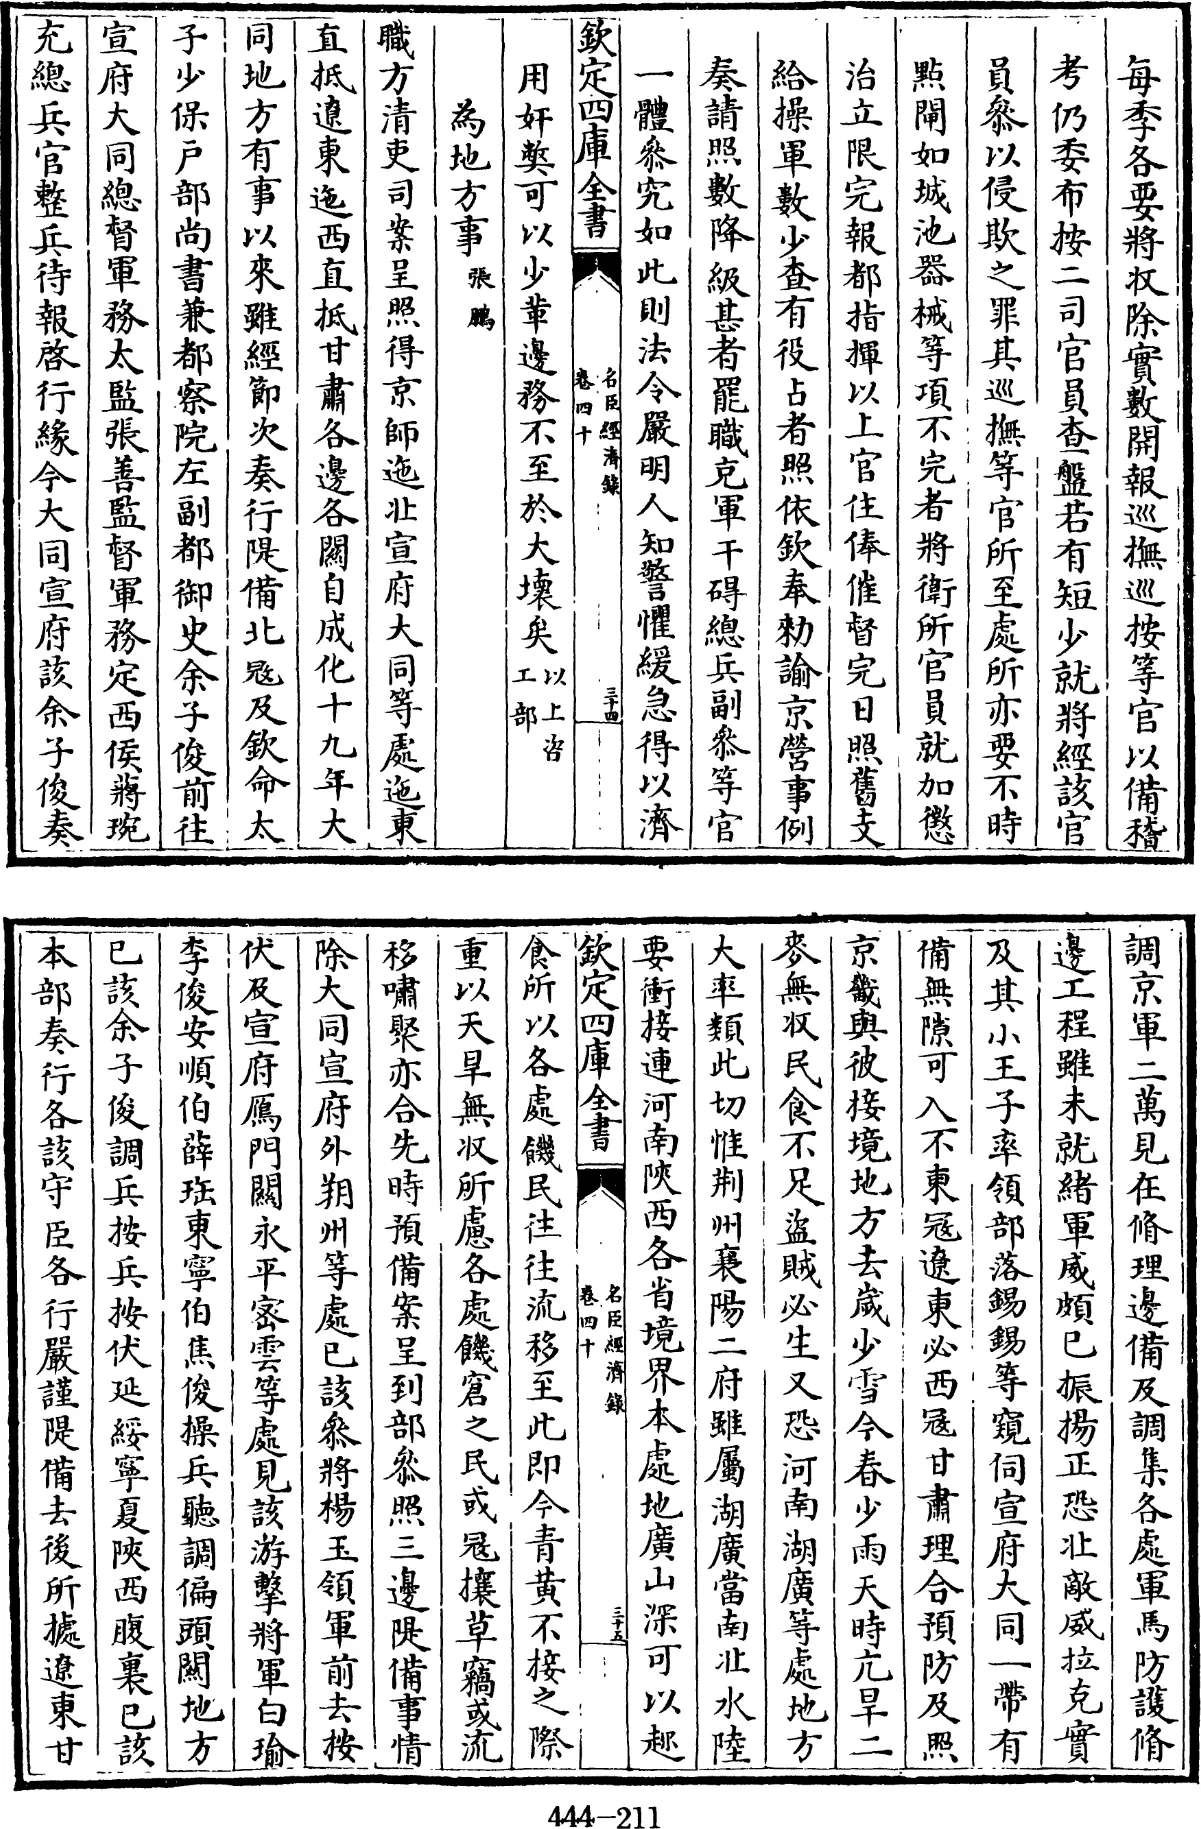 每季各要將收除實數開報巡撫巡按等官以備稽
考仍委布按二司官員查盤若有短少就將經該官
員叅以侵欺之罪其巡撫等官所至處所亦要不時
點閘如城池器械等項不完者將衛所官員就加懲
治立限完報都指揮以上官住俸催督完日照舊支
給操軍數少查有役占者照依欽奉勅諭京營事例
奏請照數降級甚者罷職充軍干碍總兵副叅等官
一體叅究如此則法令嚴明人知警懼緩急得以濟
欽定四庫全書
名臣經濟錄
卷四十
三十四
用奸獘可以少革邊務不至於大壞矣以上咨
工部
為地方事張鵬
職方清吏司案呈照得京師迤北宣府大同等處迤東
直抵遼東迤西直抵甘肅各邊各關自成化十九年大
同地方有事以來雖經節次奏行隄備北寇及欽命太
子少保戶部尚書兼都察院左副都御史余子俊前往
宣府大同總督軍務太監張善監督軍務定西侯蔣琬
充總兵官整兵待報啓行緣今大同宣府該余子俊奏
調京軍二萬見在脩理邊備及調集各處軍馬防護脩
邊工程雖未就緒軍威頗已振揚正恐北敵威拉克實
及其小王子率領部落錫錫等窺伺宣府大同一帶有
備無隙可入不東寇遼東必西寇甘肅理合預防及照
京畿與彼接境地方去歲少雪今春少雨天時亢旱二
麥無收民食不足盜賊必生又恐河南湖廣等處地方
大率類此切惟荆州襄陽二府雖屬湖廣當南北水陸
要衝接連河南陜西各省境界本處地廣山深可以趂
欽定四庫全書
名臣經濟錄
卷四十
三十五
食所以各處饑民往往流移至此即今青黃不接之際
重以天旱無收所慮各處饑窘之民或寇攘草竊或流
移嘯聚亦合先時預備案呈到部叅照三邊隄備事情
除大同宣府外朔州等處已該叅將楊玉領軍前去按
伏及宣府鴈門關永平密雲等處見該游擊將軍白瑜
李俊安順伯薛珤東寧伯焦俊操兵聽調偏頭關地方
已該余子俊調兵按兵按伏延綏寧夏陜西腹裏已該
本部奏行各該守臣各行嚴謹隄備去後所據遼東甘
444-211